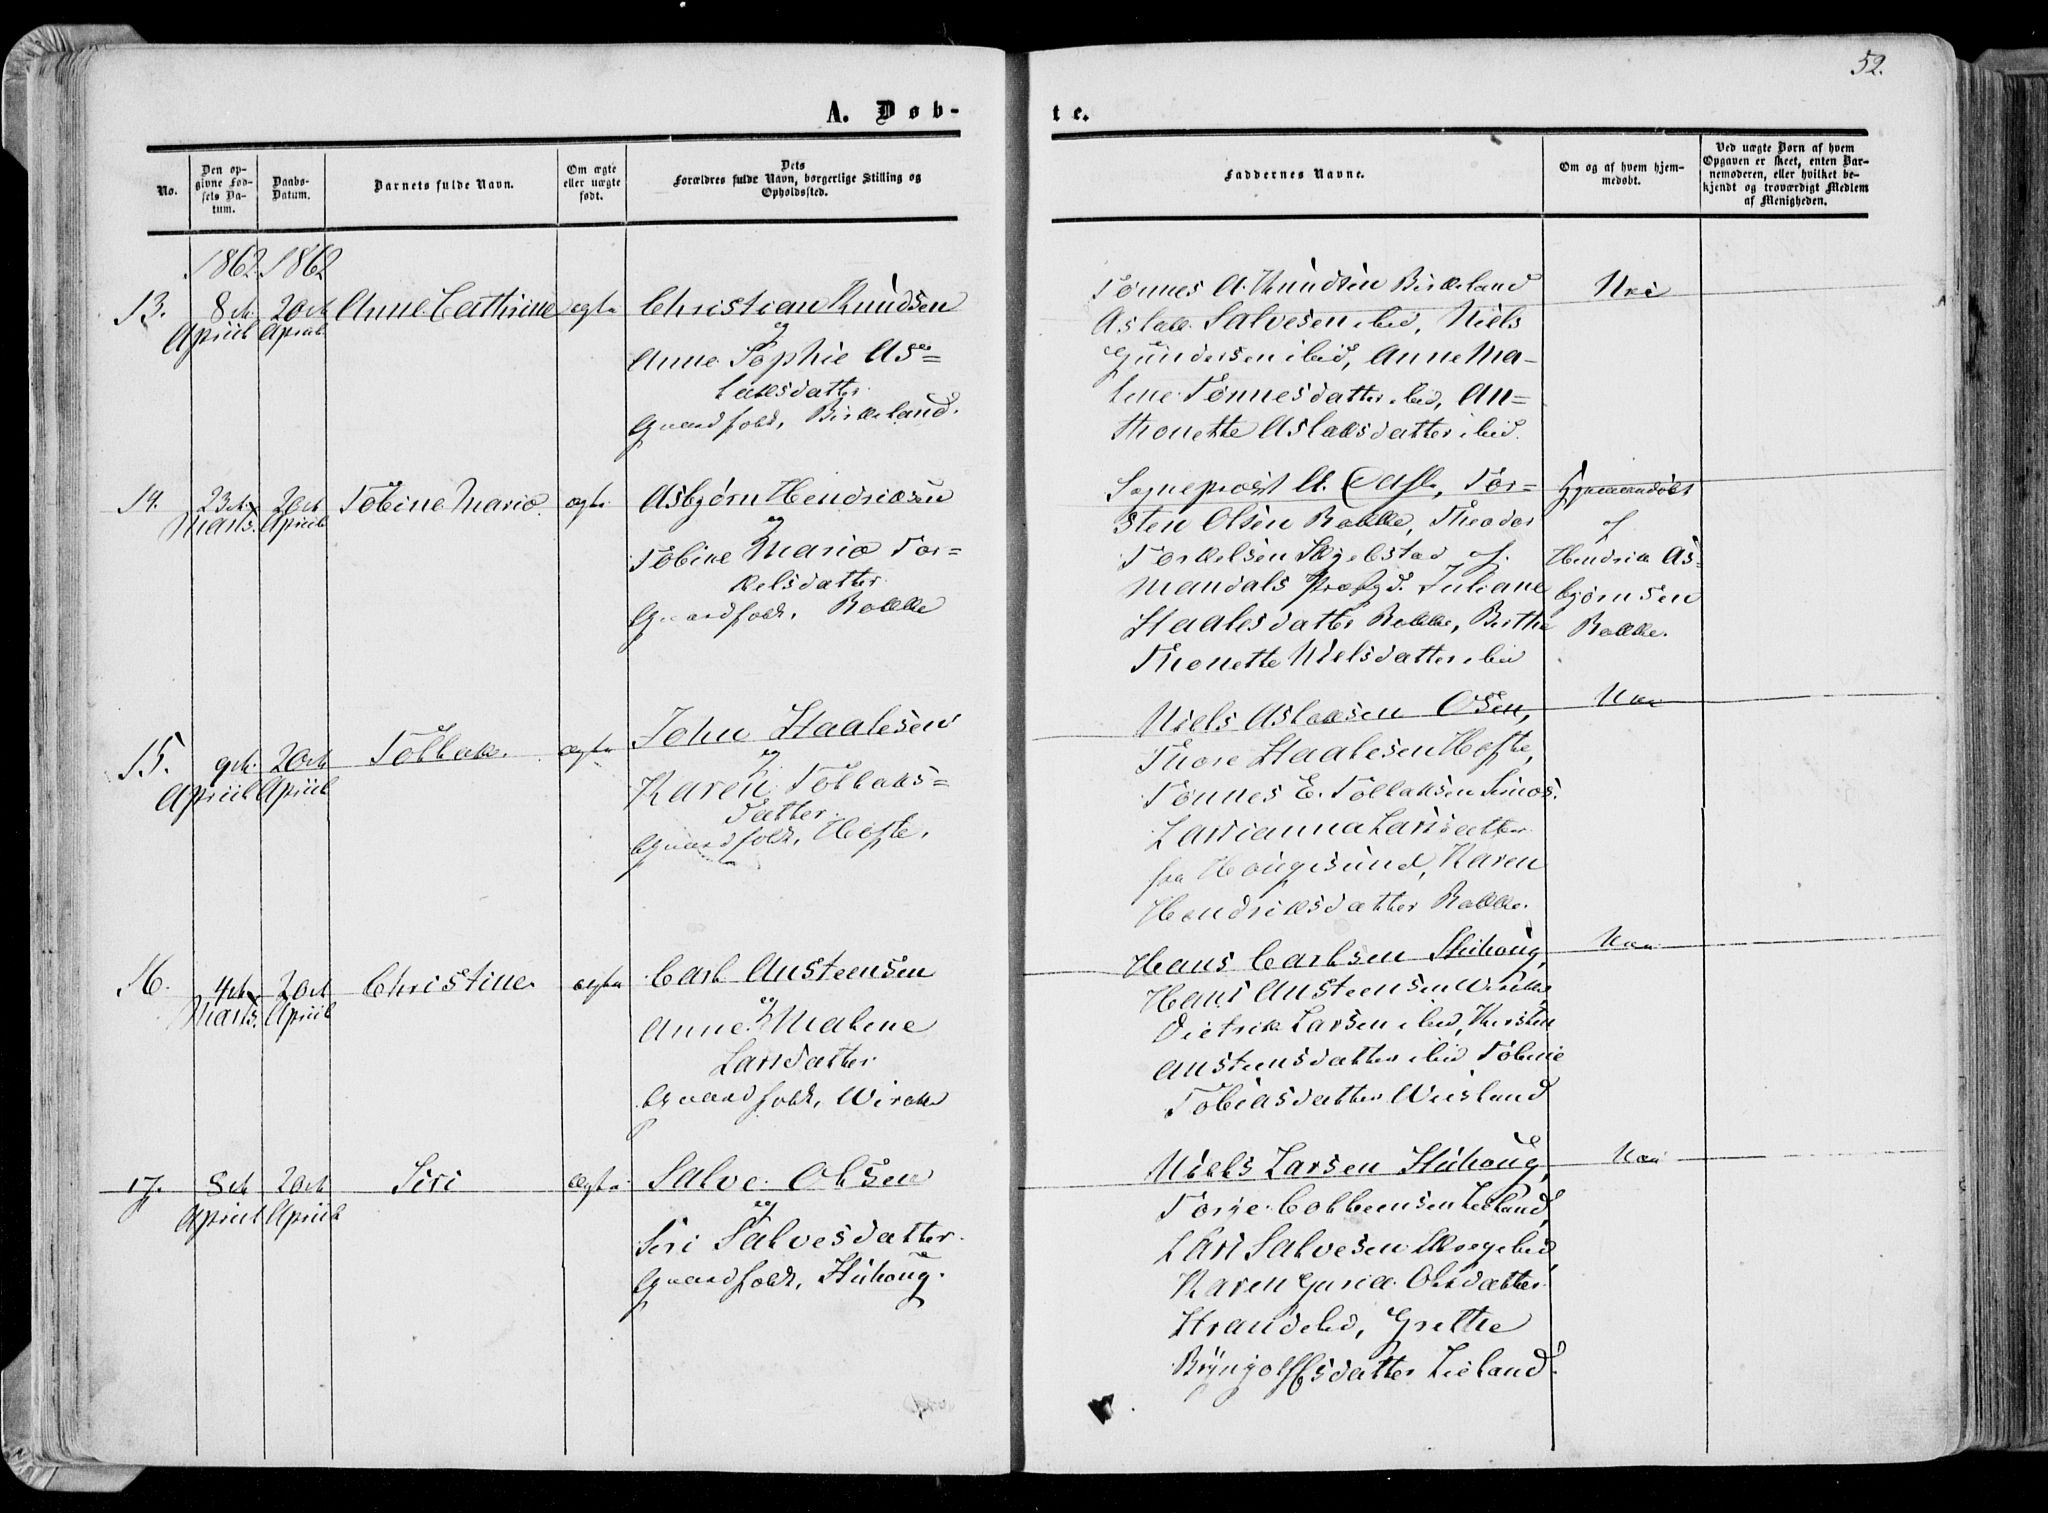 52.
A. Døb-
te.
No.
Den op-
givne Fød-
sels Da-
tum.
Daabs-
Datum.
Barnets fulde Navn.
Om ægte
eller uægte
født.
Dets
Forældres fulde Navn, borgerlige Stilling og
Opholdssted.
Faddernes Navne.
Om og af hvem hjem-
medøbt.
Ved uægte Børn af hvem
Opgaven er skeet, enten Bar-
nemoderen, eller hvilket be-
kjendt og troværdigt Medlem
af Menigheden.
1862. 1862
13. 8de 20de Anne Cathrine ægte Christian Knudsen
April April
og
Anne Sophie As=
laksdatter
Gaardfolk, Birkeland.
Tønnes A. Knudsen Birkeland
Aslak Salvesen ibid, Niels
Gundersen ibid, Anne Ma-
lene Tønnesdatter ibid, An=
thonette Aslaksdatter ibid.
Nei
14. 23de 20de Tobine Maria ægte Asbjørn Hendriksen
Marts. April
og
Tobine Maria Tor=
kelsdatter
Gaardfolk, Bakke
Sogneprest A. Tor=
sten Olsen Bakke, Theodor
Torkelsen af
Mandals Præstgd. Juliane
Staalesdatter Bakke, Berthe
Thonette Nielsdatter ibid
Hjemmedøbt
af
Hendrik As-
bjørnsen
Bakke.
15. 9de 20de Tollak ægte John Staalesen
April April
og
Karen Tollaks=
datter
Gaardfolk, Hofte.
Niels Aslaksen Osen,
Thore Staalesen Hofte,
Tønnes E. Tollaksen
Larsianna Larsdatter
fra Hougesund, Karen
Hendriksdatter Bakke.
Nei
16. 4de 20de Christine ægte Carl Austeensen
Marts. April
og
Anne Malene
Larsdatter
Gaardfolk, Wirak
Hans Carlsen Stuhoug,
Hans Austeensen Wirak,
Dietrik Larsen ibid, Kirsten
Austeensdatter ibid Tobine
Tobiasdatter
Nei
17. 8de 20de Siri ægte Salve Olsen
April April
og
Siri Salvesdatter
Gaardfolk, Stuhoug.
Niels Larsen Stuhoug,
Torje Colbeensen Lieland,
Lars Salvesen
Karen Guria Olsdatter
Grethe
Bryngolfsdatter Lieland.
Nei